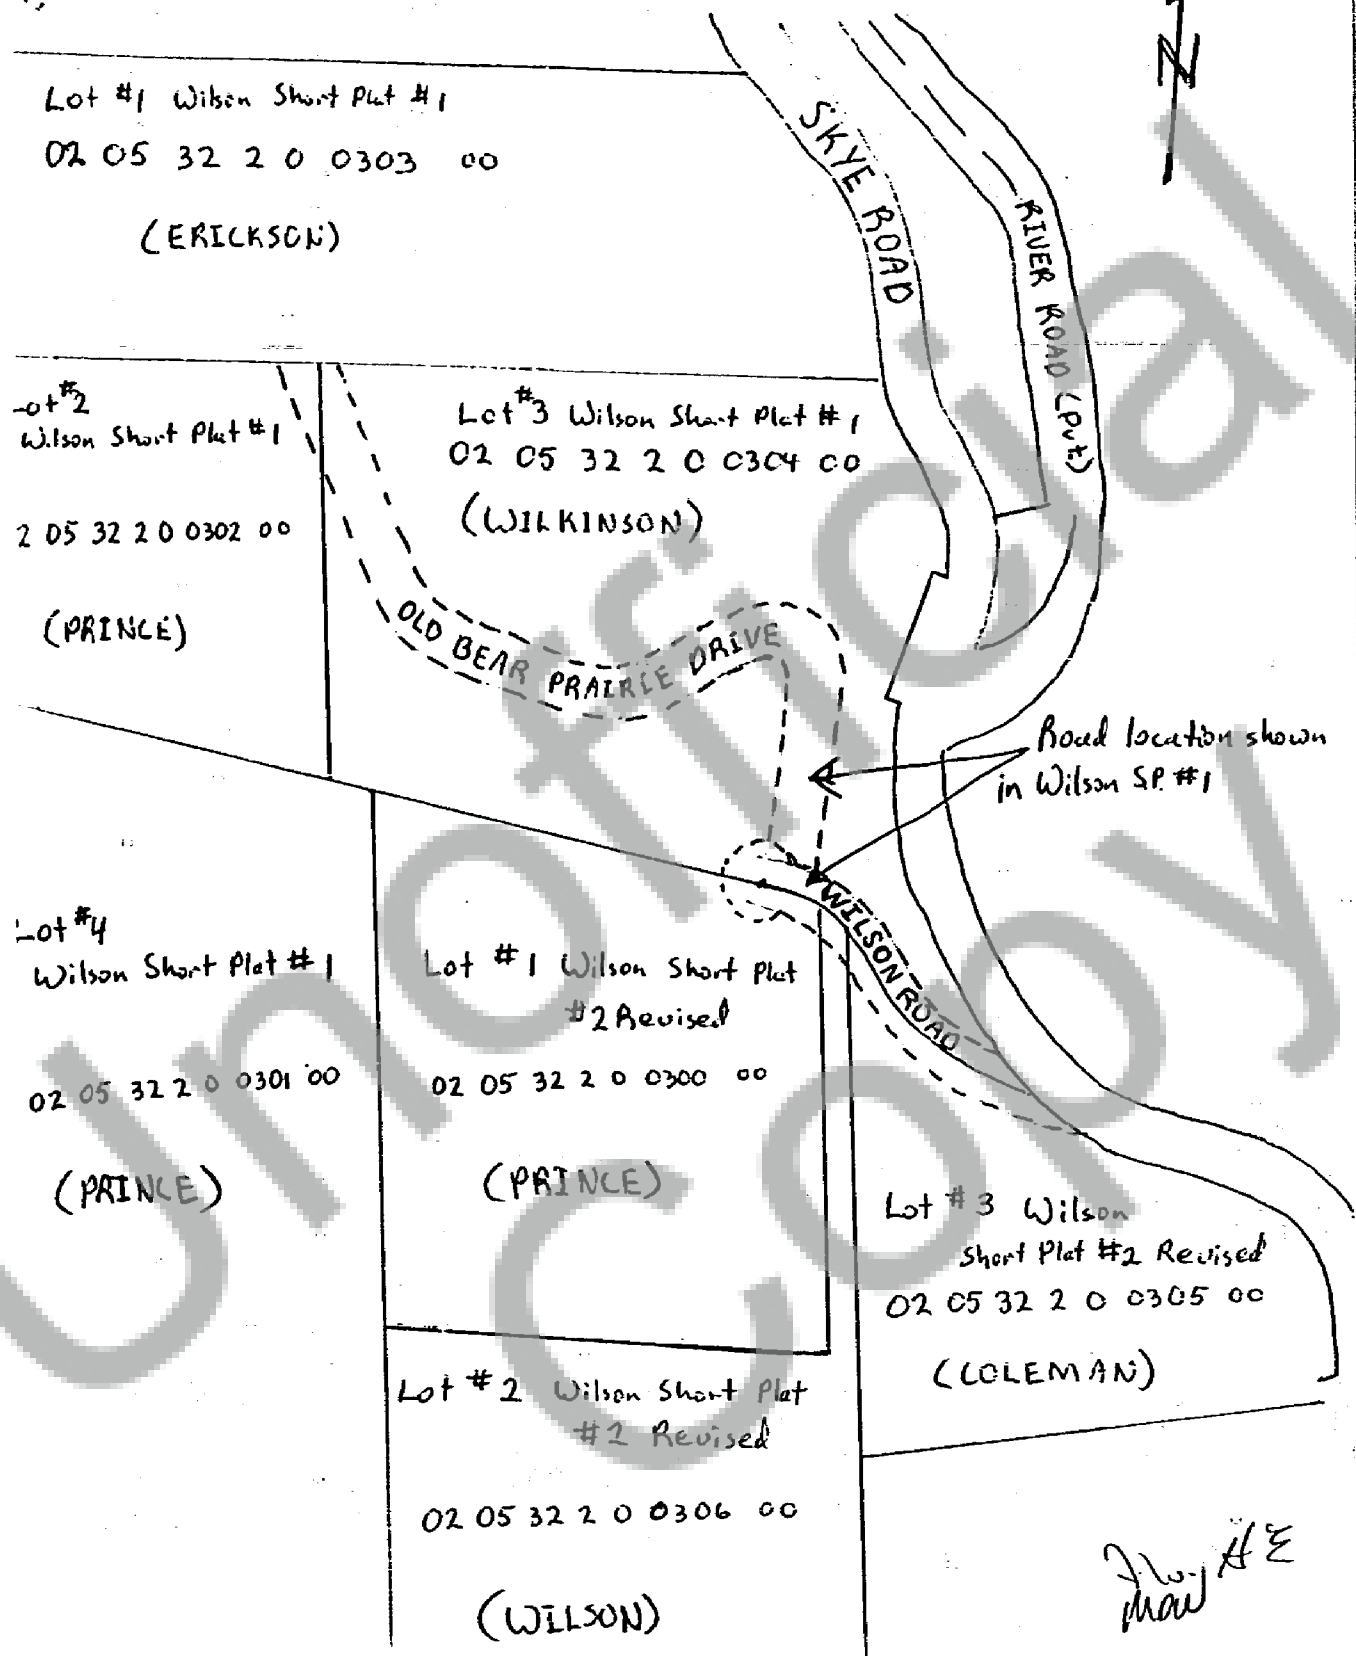 N
Lot #1 Wilson Short Plat #1
02 05 32 2 0 0303 00
(ERICKSON)
SKYE ROAD
RIVER ROAD (Pvt.)
Lot #2
Wilson Short Plat #1
2 05 32 2 0 0302 00
(PRINCE)
Lot #3 Wilson Short Plat #1
02 05 32 2 0 0304 00
(WILKINSON)
OLD BEAR PRAIRIE DRIVE
Road location shown
in Wilson S.P. #1
WILSON ROAD
Lot #4
Wilson Short Plat #1
02 05 32 2 0 0301 00
(PRINCE)
Lot #1 Wilson Short Plat
#2 Revised
02 05 32 2 0 0300 00
(PRINCE)
Lot #3 Wilson
Short Plat #2 Revised
02 05 32 2 0 0305 00
(COLEMAN)
Lot #2 Wilson Short Plat
#2 Revised
02 05 32 2 0 0306 00
(WILSON)
Unofficial
Copy